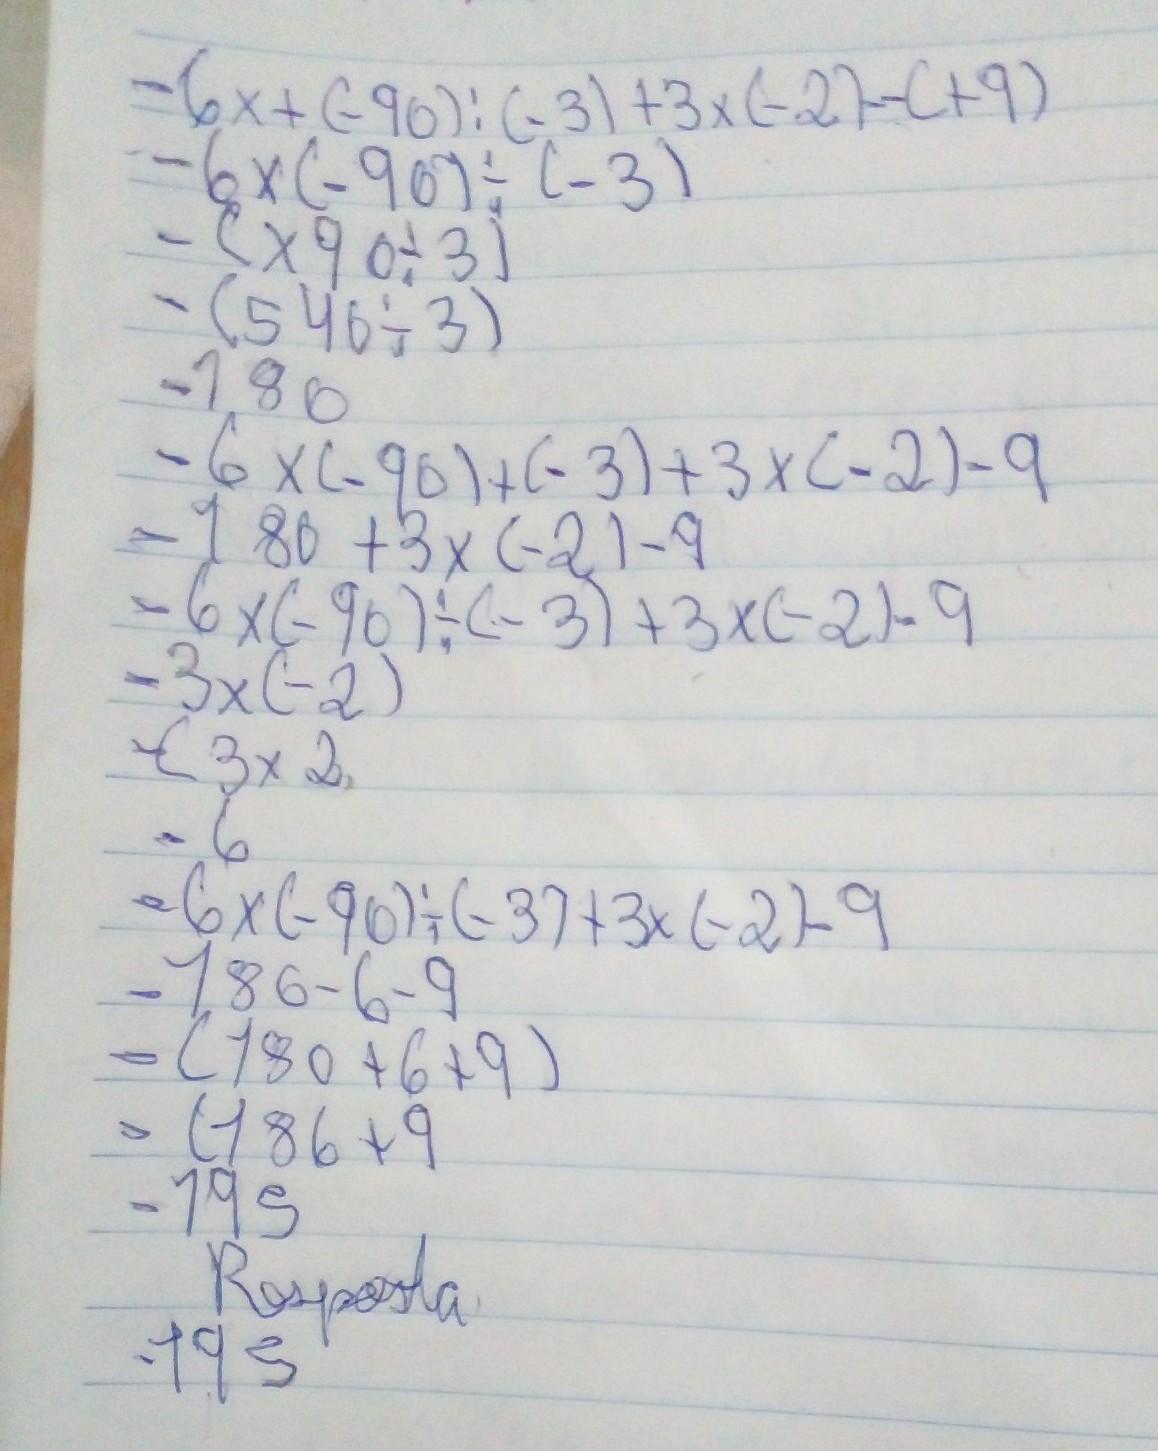 -6x+(-90)÷(-3)+3x(-2)-(+9)
-6x(-90)÷(-3)
-(x90÷3)
-(540÷3)
-180
-6x(-90)+(-3)+3x(-2)-9
-180+3x(-2)-9
-6x(-90)÷(-3)+3x(-2)-9
-3x(-2)
-(3x2
-6
-6x(-90)÷(-3)+3x(-2)-9
-186-6-9
-(180+6+9)
-(186+9
-195
Resposta
-195